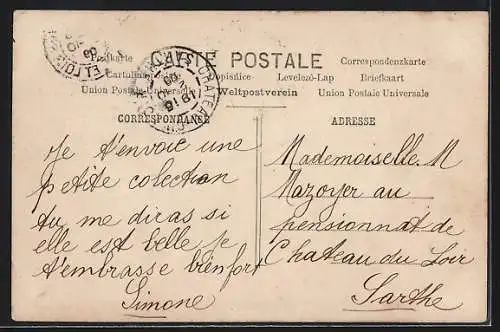 CARTE POSTALE
Postkarte Correspondenzkarte
Cartolina Dopisnice Levelezö-Lap Briefkaart
Union Postale Universelle Weltpostverein Union Postale Universale
CORRESPONDANCE
ADRESSE
Je t'envoie une
petite colection
tu me diras si
elle est belle je
t'embrasse bien fort
Simone
Mademoiselle M
Mazoyer au
pensionnat de
Chateau du Loir
Sarthe
CHATEAU